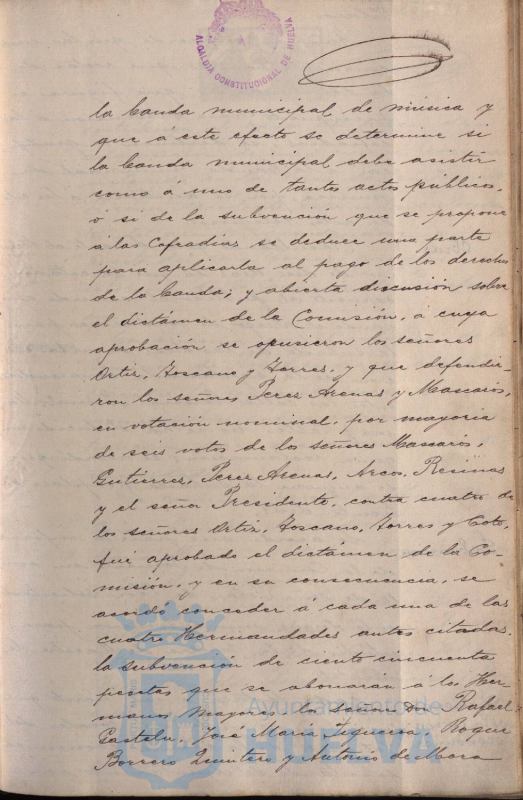 ALCALDIA CONSTITUCIONAL DE HUELVA
la banda municipal de música y
que á este efecto se determine si
la banda municipal debe asistir
como á uno de tantos actos públicos,
ó si de la subvención que se propone
á las Cofradías se deduce una parte
para aplicarla al pago de los derechos
de la banda; y abierta discusión sobre
el dictámen de la Comisión, á cuya
aprobación se opusieron los señores
Ortiz, Toscano y Torres, y que defendie-
ron los señores Perez Arenas y Mascarós,
en votación nominal, por mayoria
de seis votos de los señores Mascarós,
Gutierrez, Perez Arenas, Arcos, Resinas
y el señor Presidente, contra cuatro de
los señores Ortiz, Toscano, Torres y Coto,
fué aprobado el dictámen de la Co-
misión, y en su consecuencia, se
acordó conceder á cada una de las
cuatro Hermandades antes citadas,
la subvención de ciento cincuenta
pesetas que se abonarán á los Her-
manos Mayores los señores Don Rafael
José María Figueroa, Roque
Borrero Quintero y Antonio de Mora
Ayuntamiento de
HUELVA